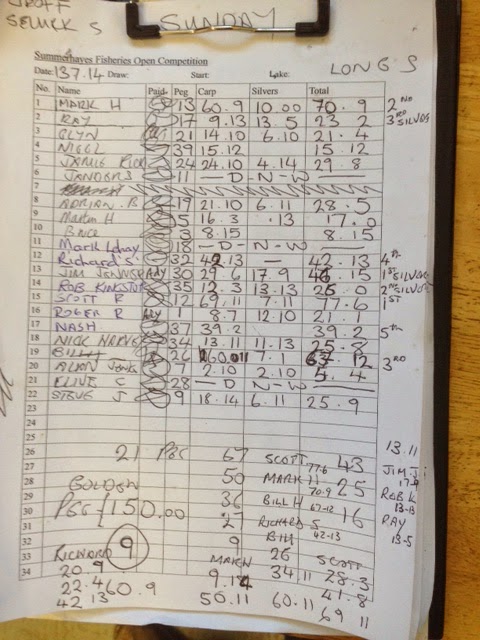 GEOFF
SELLICK S SUNDAY
Summerhayes Fisheries Open Competition
Date: 13.7.14 Draw: Start: Lake: LONGS
No. Name Paid Peg Carp Silvers Total
1 MARK H 13 60.9 10.00 70.9 2ND
2 RAY 17 9.13 13.5 23 2 3RD SILVERS
3 GLYN 21 14.10 6.10 21.4
4 NIGEL 39 15.12 15.12
5 JAMIE RICH 24 24.10 4.14 29.8
6 JANDERS 11 — D - N - W —
7
8 ADRIAN. B 19 21.10 6.11 28.5
9 Martin H 5 16.3 .13 17.0
10 BNCE 3 8.15 8.15
11 Mark 18 — D - N - W —
12 Richard S 32 42.13 — 42.13 4th
13 JIM JENNER 30 29.6 17.9 46.15 1ST SILVERS
14 ROB KINGSTON 35 12.3 13.13 26.0 2ND SILVERS
15 SCOTT R 12 69.11 7.11 77.6 1ST
16 ROGER R 1 8.7 12.10 21.1
17 NASH 37 39.2 39.2 5th
18 NICK 34 13.11 11.13 25.8
19 BILL H 26 60.011 7.1 67.12 3RD
20 ALAN Jenks 7 2.10 2.10 5.4
21 CLIVE C 28 — D N - W —
22 STEVE J 9 18.14 6.11 25.9
23
24
25
26 21 PEG 67 SCOTT 77-6 43 13.11
27 50 MARK H 70-9 25 JIM J 17-9
28 GOLDEN 36 BILL H 67-12 16 ROB K 13-13
29 PEG £150.00 27 RICHARD S 42-13 RAY 13-5
30
31 9 Bill
32 9 26
33 RICHARD MARK SCOTT
34 20.9 9.14 34.11 28.3
22.4 60.9 50.11 60.11 41.8
42 13 69 11